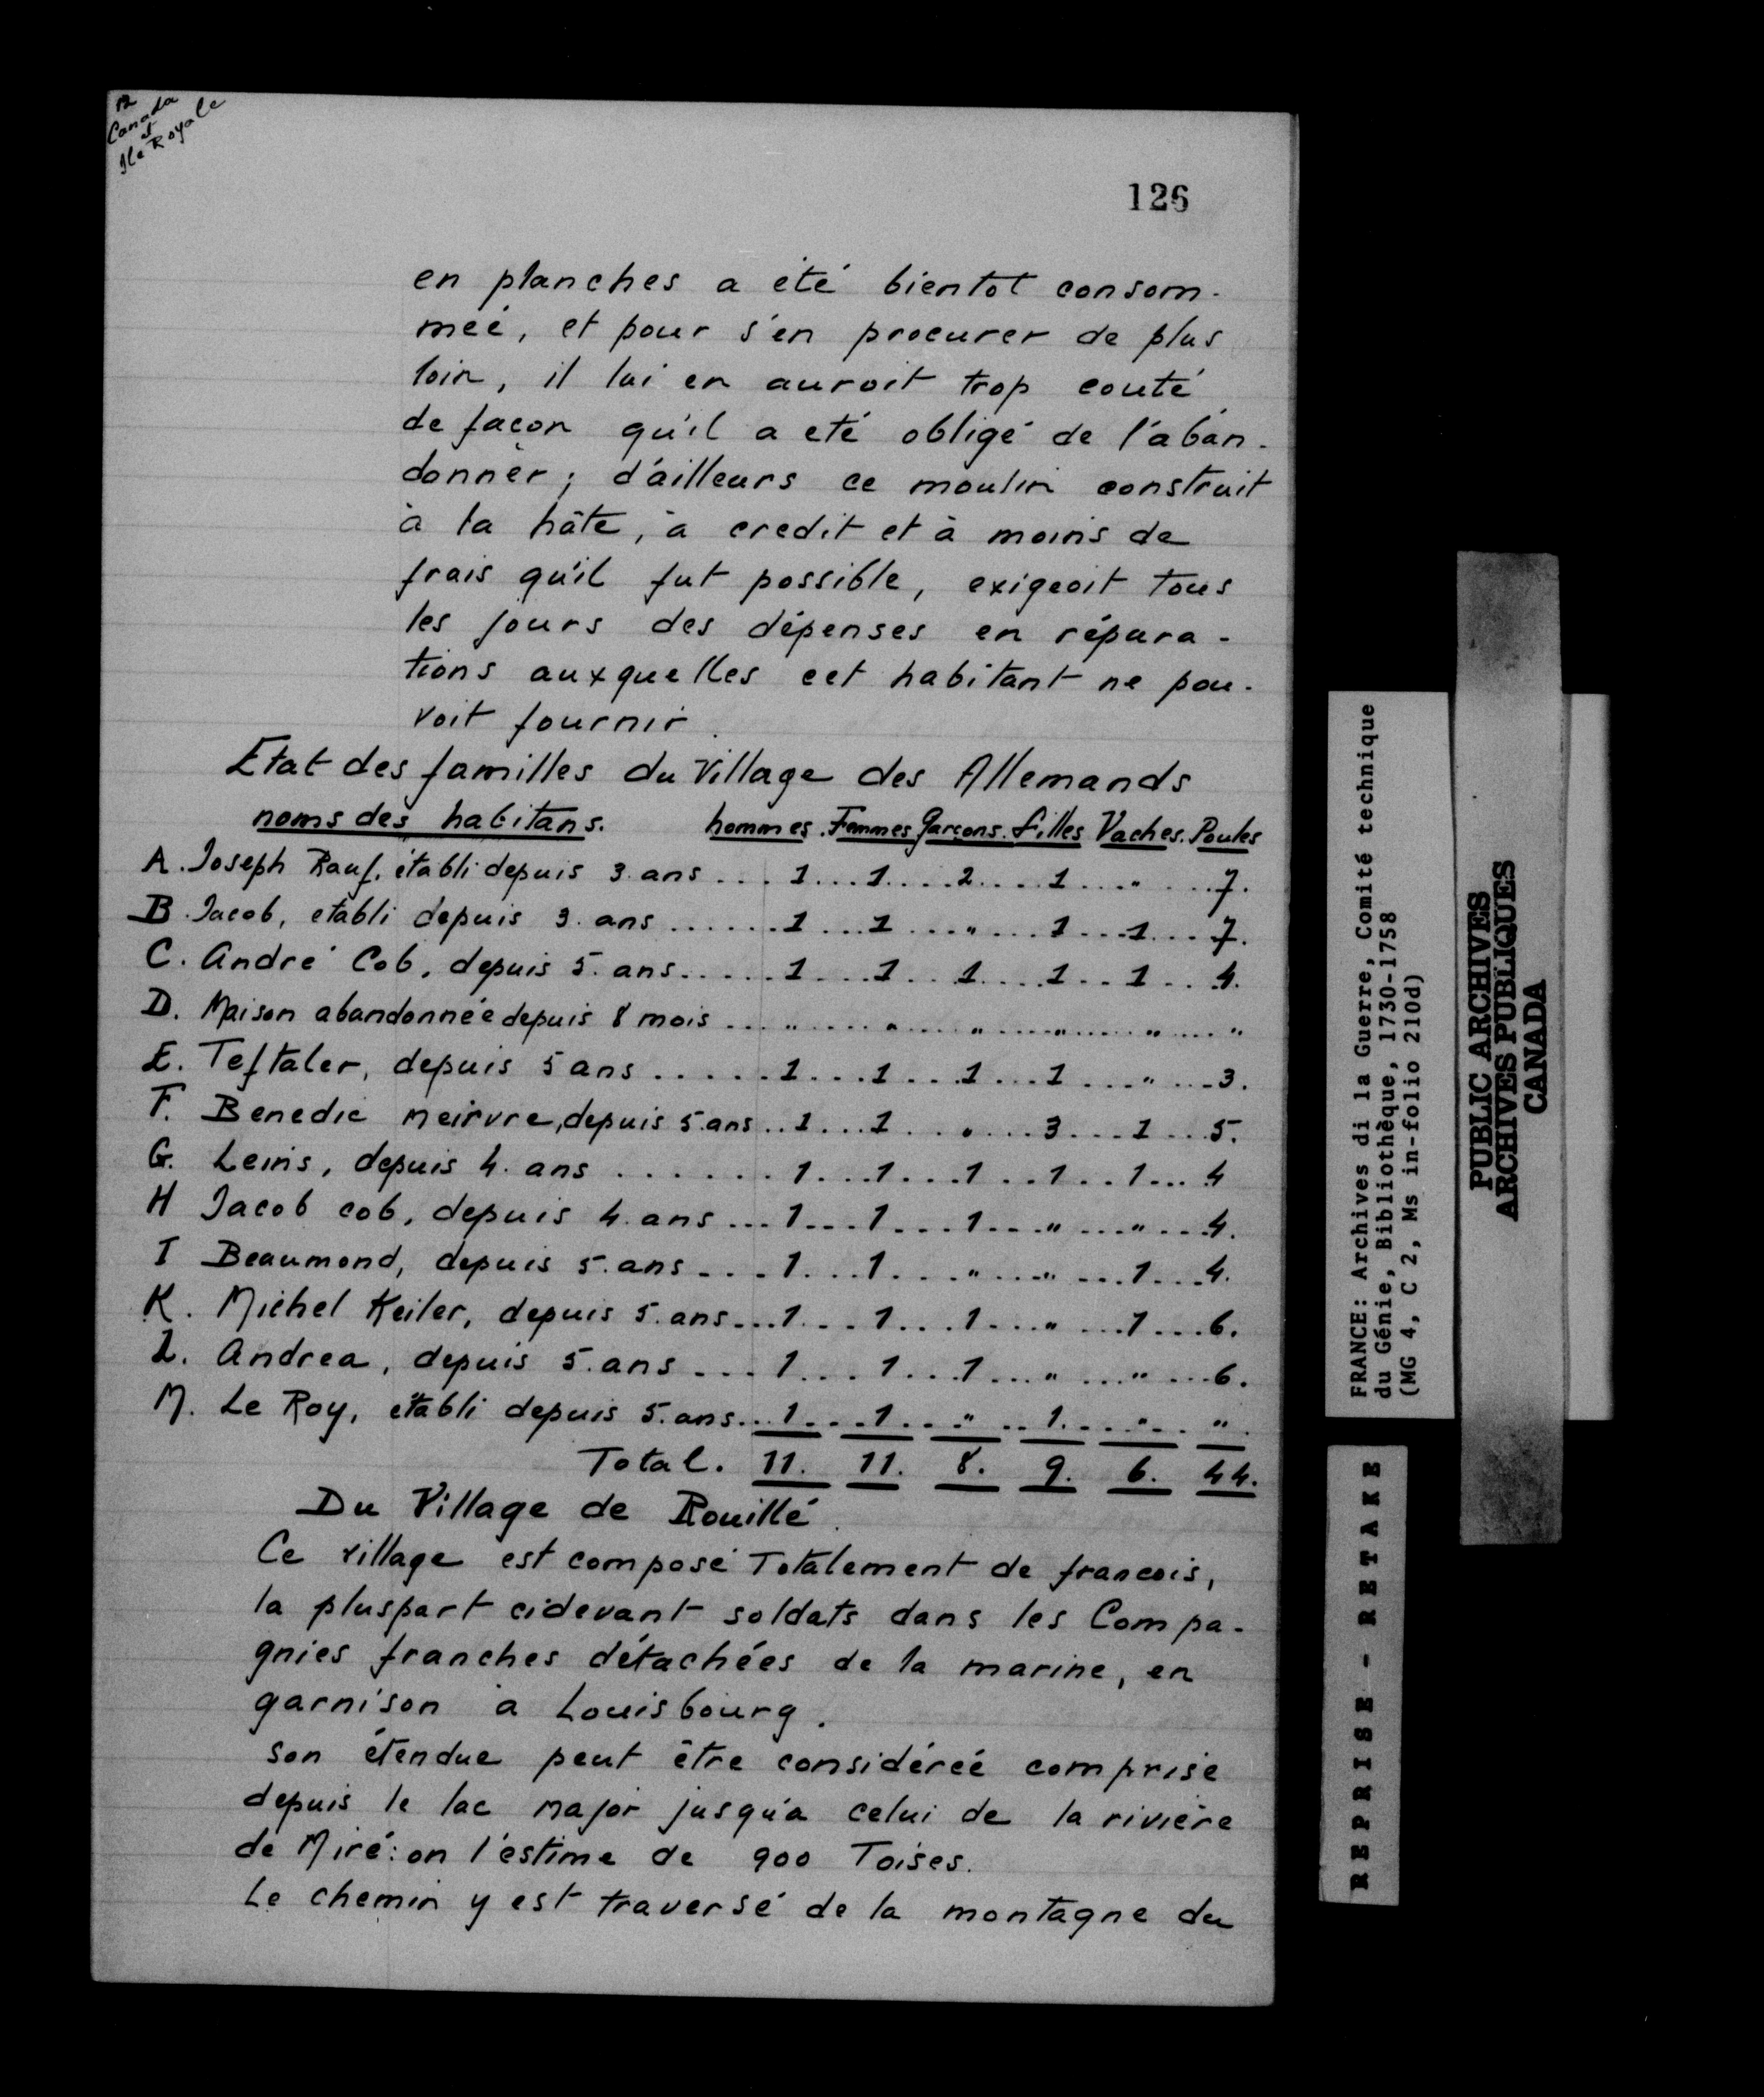 12
Canada
et
Ile Royale
126
en planches a été bientot consom-
meé, et pour s'en procurer de plus
loin, il lui en auroit trop couté
de façon qu'il a eté obligé de l'aban-
donner; d'ailleurs ce moulin construit
à la hâte, à credit et à moins de
frais qu'il fut possible, exigeoit tous
les jours des dépenses en répara-
tions auxquelles cet habitant ne pou-
voit fournir.
Etat des familles du Village des Allemands
noms des habitans. hommes. Femmes Garçons. filles Vaches. Poules
A. Joseph Rauf, établi depuis 3 ans ... 1 ... 1 ... 2 ... 1 ... " ... 7.
B. Jacob, etabli depuis 3. ans ...... 1 ... 1 ... " ... 1 ... 1 ... 7.
C. André Cob, depuis 5. ans ..... 1 ... 1 ... 1 ... 1 ... 1 ... 4.
D. Maison abandonnée depuis 8 mois ... " ... " ... " ... " ... " ... "
E. Teftaler, depuis 5 ans ..... 1 ... 1 ... 1 ... 1 ... " ... 3.
F. Benedic meirvre, depuis 5. ans .. 1 ... 1 ... " ... 3 ... 1 ... 5.
G. Leins, depuis 4. ans ...... 1 ... 1 ... 1 ... 1 ... 1 ... 4
H Jacob cob, depuis 4. ans ... 1 ... 1 ... 1 ... " ... " ... 4.
I Beaumond, depuis 5. ans ... 1 ... 1 ... " ... " ... 1 ... 4.
K. Michel Keiler, depuis 5. ans ... 1 ... 1 ... 1 ... " ... 1 ... 6.
L. Andrea, depuis 5. ans ... 1 ... 1 ... 1 ... " ... " ... 6.
M. Le Roy, établi depuis 5. ans ... 1 ... 1 ... " ... 1 ... " ... "
Total. 11. 11. 8. 9. 6. 44.
Du Village de Rouillé.
Ce village est composé Totalement de francois,
la pluspart cidevant soldats dans les Compa-
gnies franches détachées de la marine, en
garnison à Louisbourg.
son étendue peut être considéreé comprise
depuis le lac major jusqu'a celui de la rivière
de Miré: on l'estime de 900 Toises.
Le chemin y est traversé de la montagne du
FRANCE: Archives di la Guerre, Comité technique
du Génie, Bibliothèque, 1730-1758
(MG 4, C 2, Ms in-folio 210d)
PUBLIC ARCHIVES
ARCHIVES PUBLIQUES
CANADA
REPRISE - RETAKE